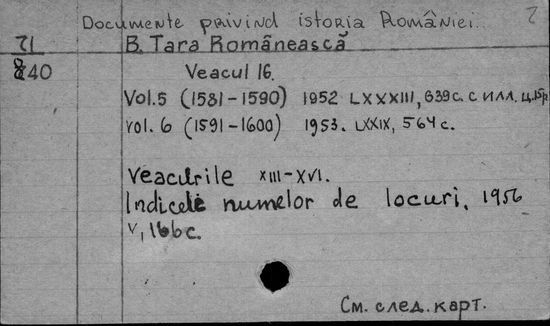 Documente privind istoria României.. 2
71 B. Tara Românească
840 Veacul 16.
Vol. 5 (1581-1590) 1952 LXXXIII, 639c. с илл. ц.15р.
vol. 6 (1591-1600) 1953. LXXIX, 564 c.
Veacurile XIII-XVI.
Indicele numelor de locuri. 1956
V, 166 c.
См. след. карт.